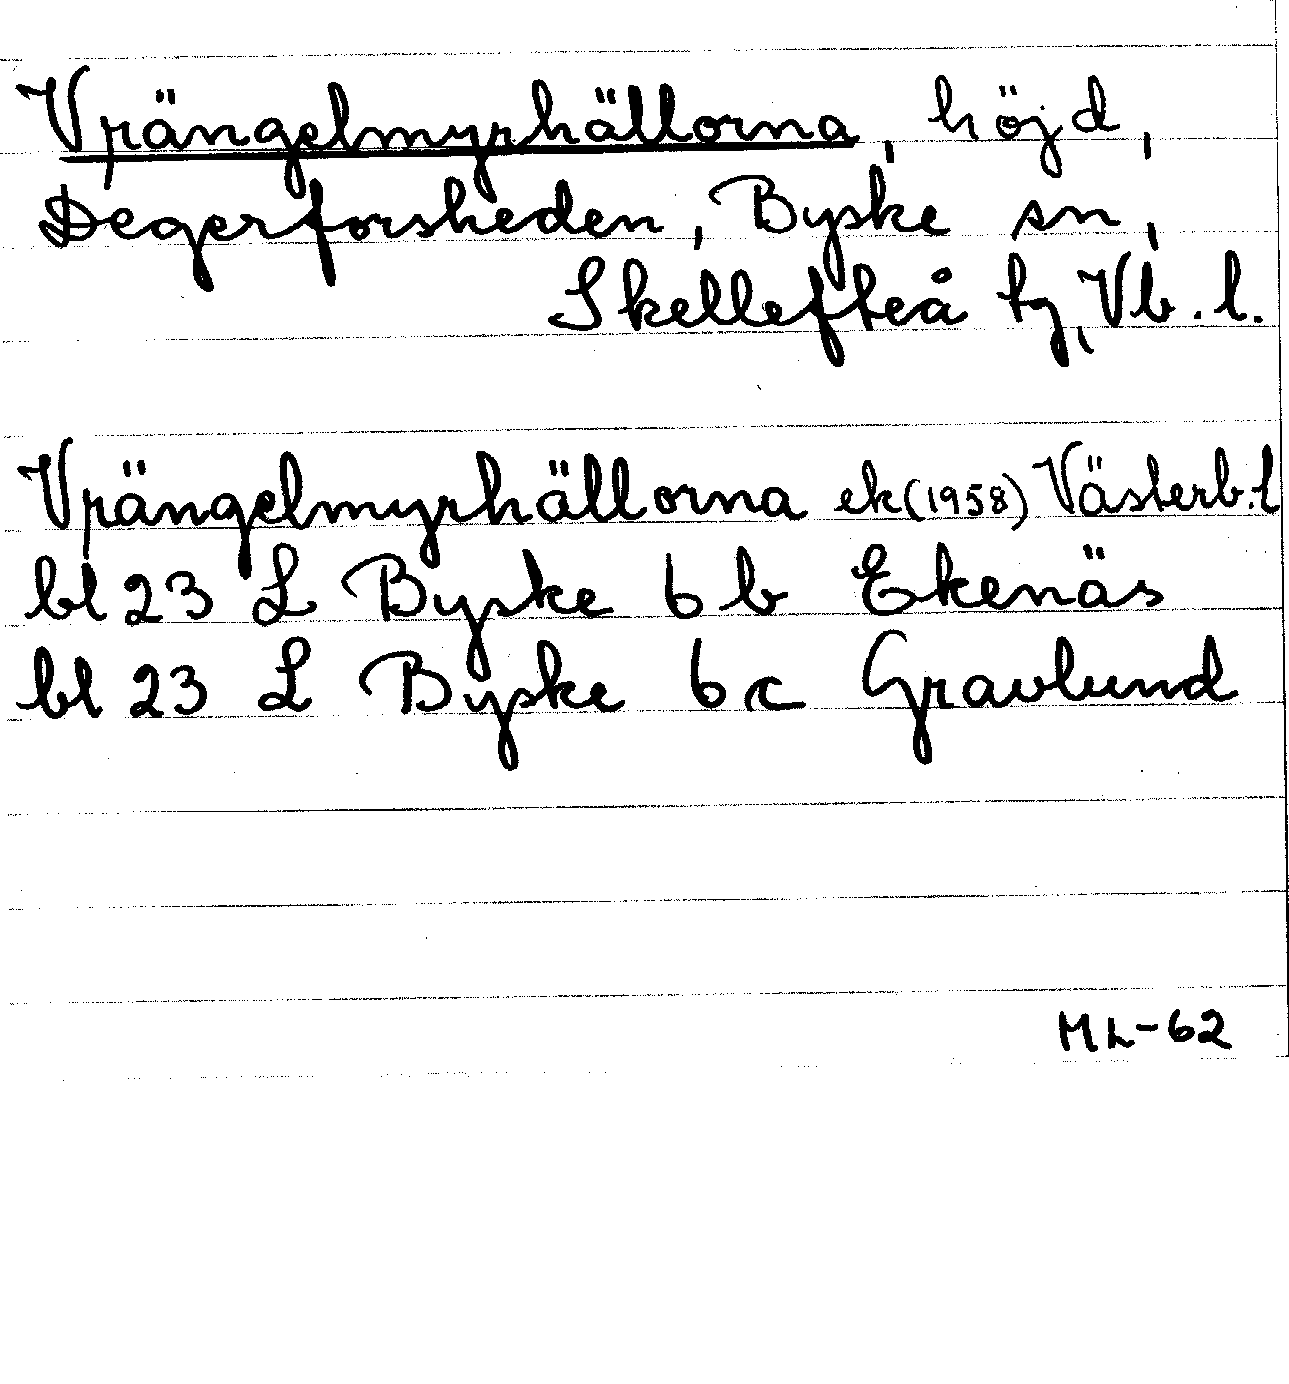 Vrängelmyrhällorna, höjd,
Degerforsheden, Byske sn,
Skellefteå tg, Vb. l.
Vrängelmyrhällorna ek (1958) Västerb. l
bl 23 L Byske 6 b Ekenäs
bl 23 L Byske 6 c Gravlund
ML-62